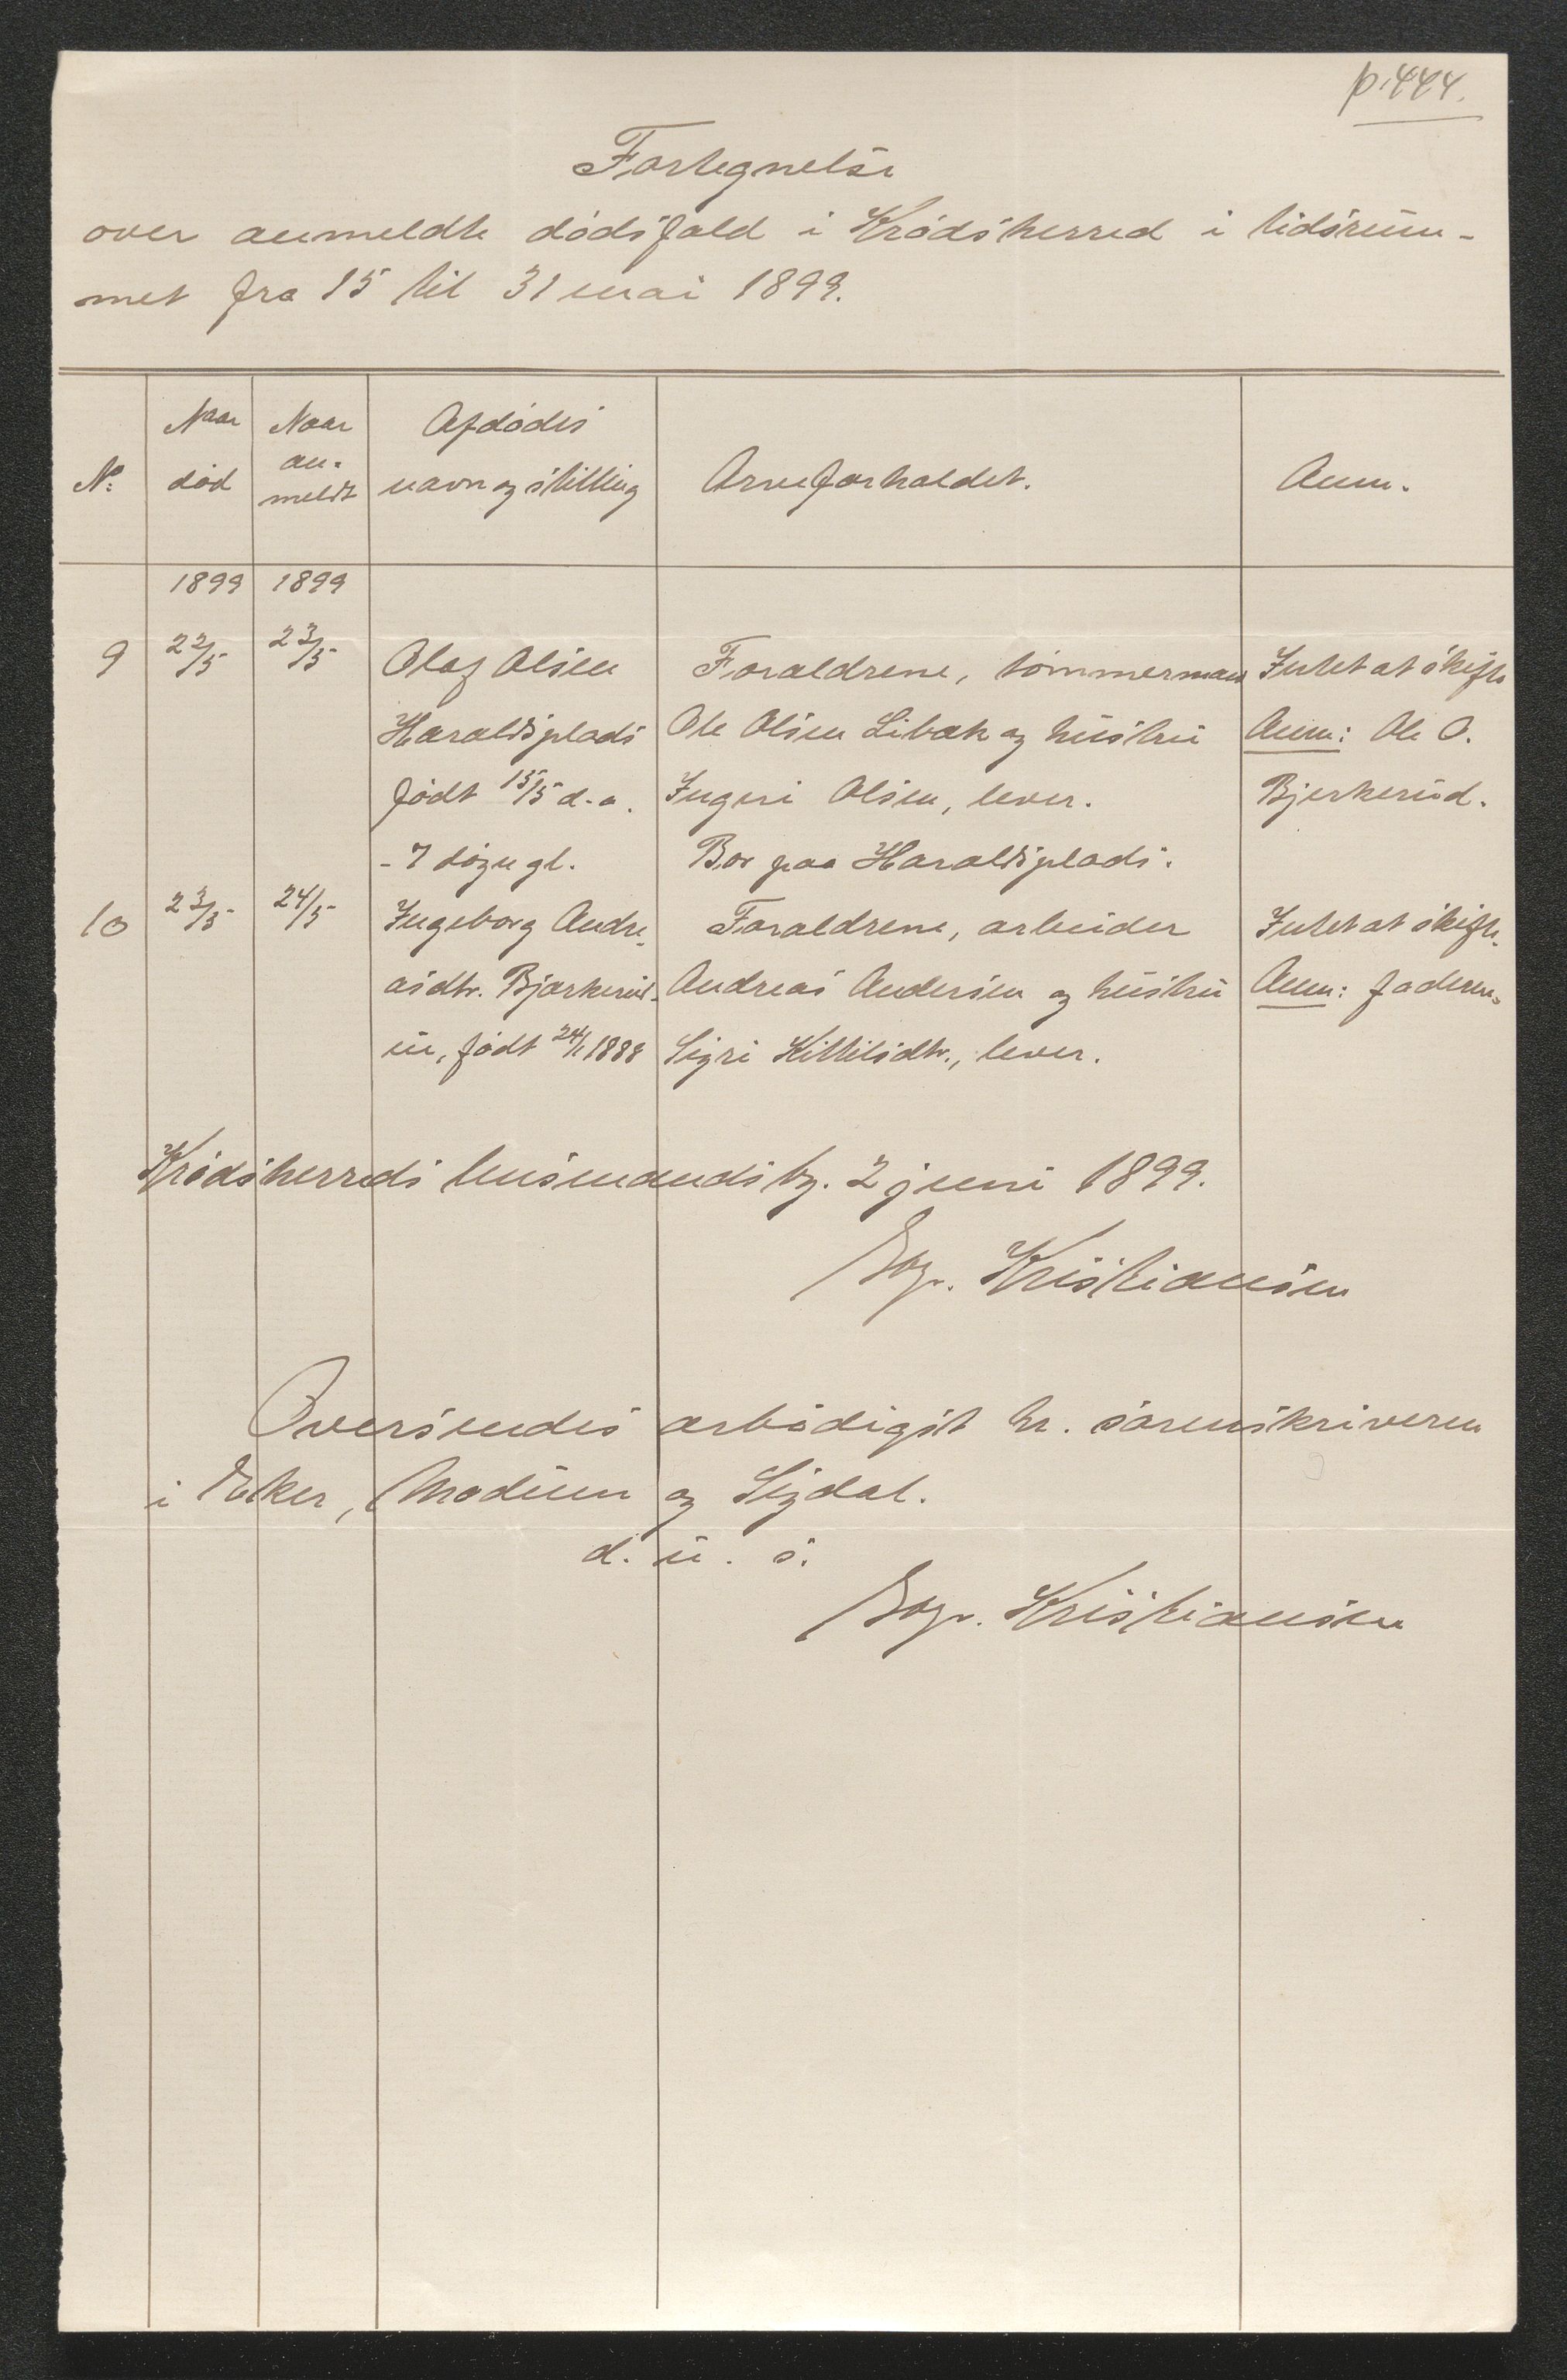 p. 444.
Fortegnelse
over anmeldte dødsfald i Krødsherred i tidsrum-
met fra 15 til 31 mai 1899.
No:
Naar
død
Naar
an-
meldt
Afdødes
navn og stilling
Arveforholdet.
Anm.
1899 1899
9 22/5 23/5 Olaf Olsen Forældrene, tømmermand Intet at skifte
Haraldsplads Ole Olsen Libæk og hustru Anm: Ole O.
født 15/5 d. a. Ingeri Olsen, lever. Bjerkerud.
- 7 døgn gl. Bor paa Haraldsplads.
10 23/5 24/5 Ingeborg Andre- Forældrene, arbeider Intet at skifte.
asdtr. Bjørkerud- Andreas Andersen og hustru Anm: faderen.
, født 24/1 1888 Sigri Kittilsdtr., lever.
Krødsherreds lensmandsbg. 2 juni 1899.
Kristiansen
Oversendes ærbødigst hr. sorenskriveren
i Eker, Modum og Sigdal.
d. u. s.
Kristiansen